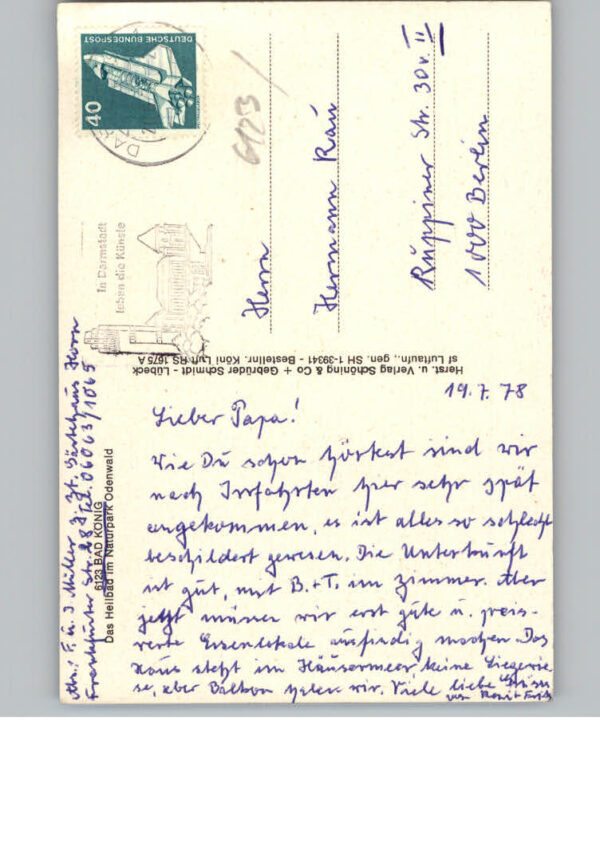 DEUTSCHE BUNDESPOST
40
6123
In Darmstadt
leben die Künste
Herrn
Hermann Rau
Ruppiner Str. 30 v. II
1000 Berlin
Herst. u. Verlag Schöning & Co + Gebrüder Schmidt - Lübeck
sf Luftaufn., gen. SH 1-3941 - Bestellnr. Köni Luft RS 1675 A
6123 BAD KÖNIG
Das Heilbad im Naturpark Odenwald
Abs.: F. u. J. Müller z. Zt. Gästehaus Horn
Frankfurter Str. Tel. 06063/1065
19.7.78
Lieber Papa!
Wie Du schon hörtest sind wir
nach Irrfahrten hier sehr spät
angekommen, es ist alles so schlecht
beschildert gewesen. Die Unterkunft
ist gut, mit B.+T. im Zimmer. Aber
jetzt müssen wir erst gute u. preis-
werte Essenlokale ausfindig machen. Das
Haus steht im Häusermeer, keine Liegewie
se, aber Balkon haben wir. Viele liebe Grüsse
von